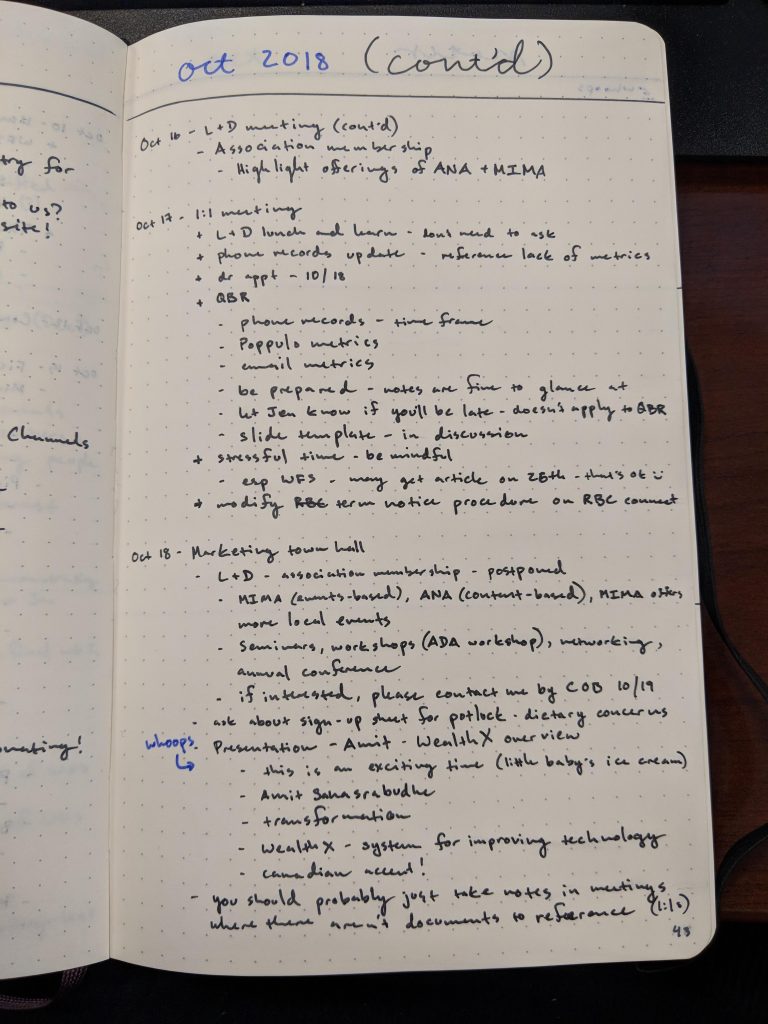 try for
to us?
site!
Channels
oct 2018 (cont'd)
Oct 16 - L+D meeting (cont'd)
- Association membership
- Highlight offerings of ANA + MIMA
Oct 17 - 1:1 meeting
+ L+D lunch and learn - don't need to ask
+ phone records update - reference lack of metrics
+ dr appt - 10/18
+ QBR
- phone records - time frame
- Poppulo metrics
- email metrics
- be prepared - notes are fine to glance at
- let Jen know if you'll be late - doesn't apply to QBR
- slide template - in discussion
+ stressful time - be mindful
- esp WFS - may get article on 28th - that's ok :)
+ modify RBC term notice procedure on RBC connect
Oct 18 - Marketing town hall
- L+D - association membership - postponed
- MIMA (events-based), ANA (content-based), MIMA offers
more local events
- Seminars, workshops (ADA workshop), networking,
annual conference
- if interested, please contact me by COB 10/19
- ask about sign-up sheet for potlock - dietary concerns
whoops - Presentation - Amit - WealthX overview
↳ - this is an exciting time (little baby's ice cream)
- Amit Sahasrabudhe
- transformation
- WealthX - system for improving technology
- canadian accent!
- you should probably just take notes in meetings
where there aren't documents to reference (1:1s)
48